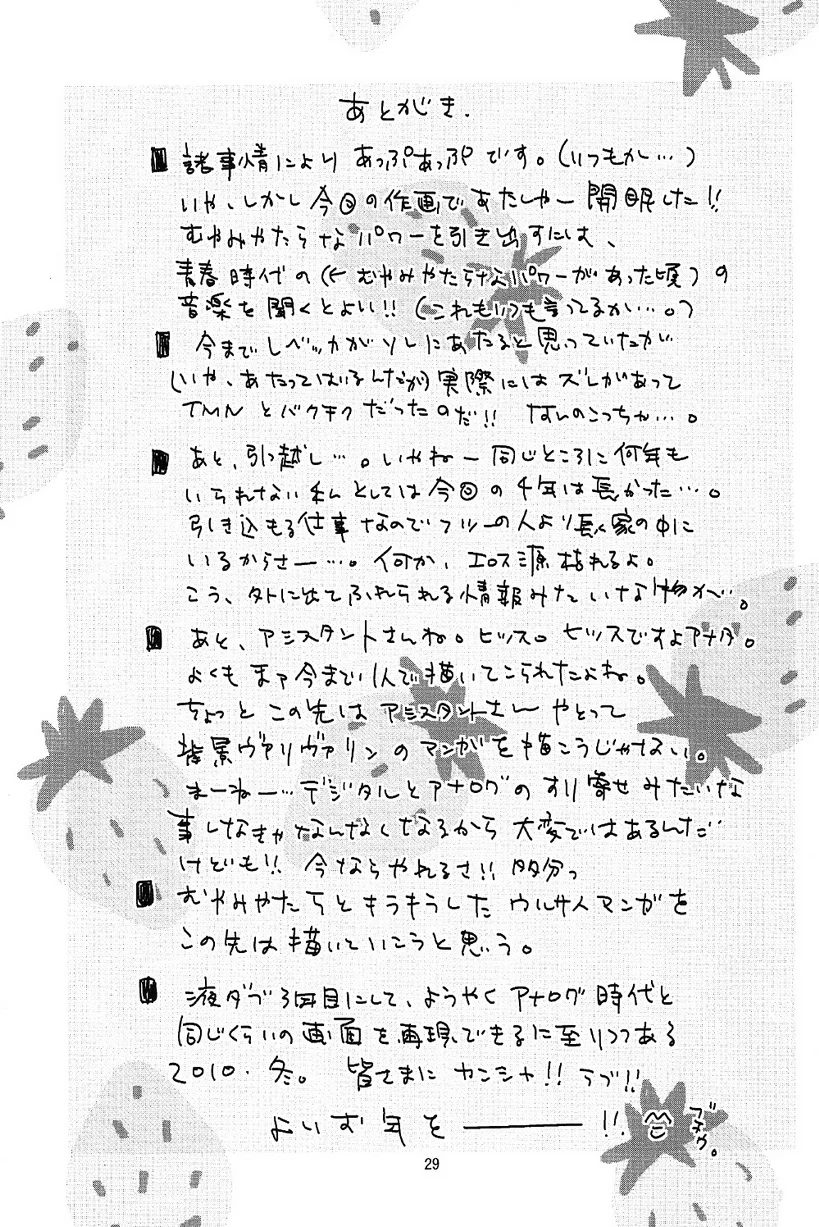 あとがき.
■ 諸事情により あっぷあっぷです。(いつもか…)
いや、しかし今回の作画であたしゃー開眼した!!
むやみやたらなパワーを引き出すには、
青春時代の(←むやみやたらなパワーがあった頃)の
音楽を聞くとよい!!(これもいつも言ってるか…。)
■ 今までレベッカがソレにあたると思っていたが
(いや、あたってはいるんだが)実際にはズレがあって
TMNとバクチクだったのだ!! なんのこっちゃ…。
■ あと、引っ越し…。いやねー同じところに何年も
いられない私としては今回の4年は長かった…。
引き込もる仕事なのでフツーの人より長く家の中に
いるからさー…。何か、エロス源枯れるよ。
こう、外に出てふれられる情報みたいな物が…。
■ あと、アシスタントさんね。ヒッス。ヒッスですよアナタ。
よくもまァ今まで1人で描いてこられたよね。
ちょっとこの先はアシスタントさんやとって
背景ヴァリヴァリンのマンガを描こうじゃない。
まーねー…デジタルとアナログのすり寄せみたいな
事しなきゃなんなくなるから大変ではあるんだ
けども!! 今ならやれるさ!! 多分っ
■ むやみやたらとキラキラしたウルサイマンガを
この先は描いていこうと思う。
■ 液タブ3年目にして、ようやくアナログ時代と
同じくらいの画面を再現できるに至りつつある
2010.冬。 皆さまにカンシャ!! ラブ!!
よいお年を――!!